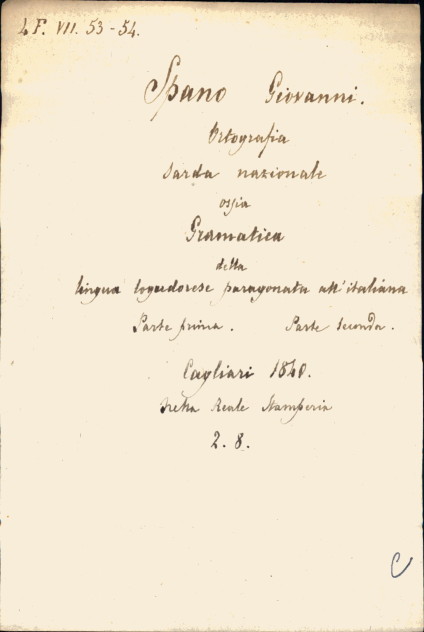 4 F. VII. 53-54.
Spano Giovanni.
Ortografia
Sarda nazionale
ossia
Gramatica
della
lingua logudorese paragonata all'italiana
Parte prima. Parte Seconda.
Cagliari 1840.
Reale Stamperia
2. 8.
C